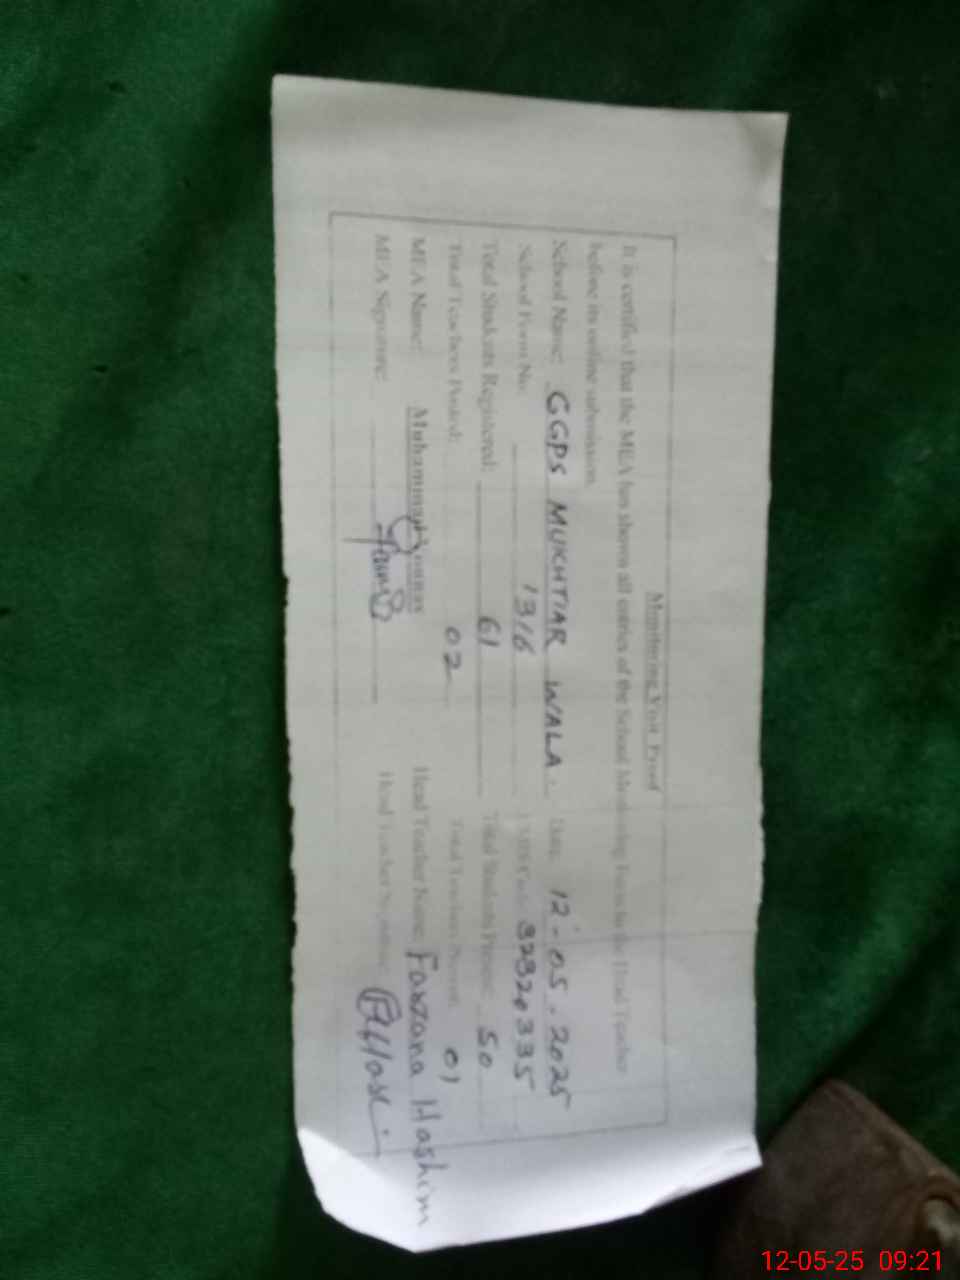 Monitoring Visit Proof
It is certified that the MEA has shown all entries of the School Monitoring Form to the Head Teacher
before its online submission.
School Name: GGPS MUKHTIAR WALA. Date: 12-05-2025
School Form No. 1316 EMIS Code 32320335
Total Students Registered: 61 Total Students Present: 50
Total Teachers Posted: 02 Total Teachers Present: 01
MEA Name: Muhammad Younas Head Teacher Name: Farzana Hashim
MEA Signature: Head Teacher Signature:
12-05-25 09:21